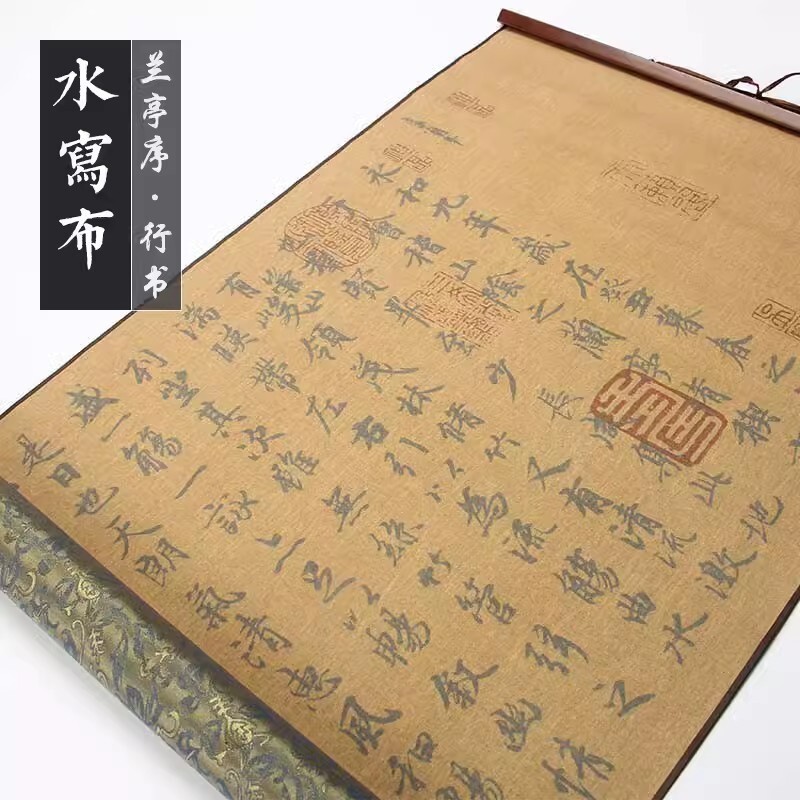 水寫布
兰亭序·行书
永和九年歲在癸丑暮春之
會稽山陰之蘭亭脩禊
羣賢畢至少長咸集此地
有崇山峻領茂林脩竹又有清流激
湍暎帶左右引以為流觴曲水
列坐其次雖無絲竹管弦之
盛一觴一詠亦足以暢敘幽情
是日也天朗氣清惠風和暢